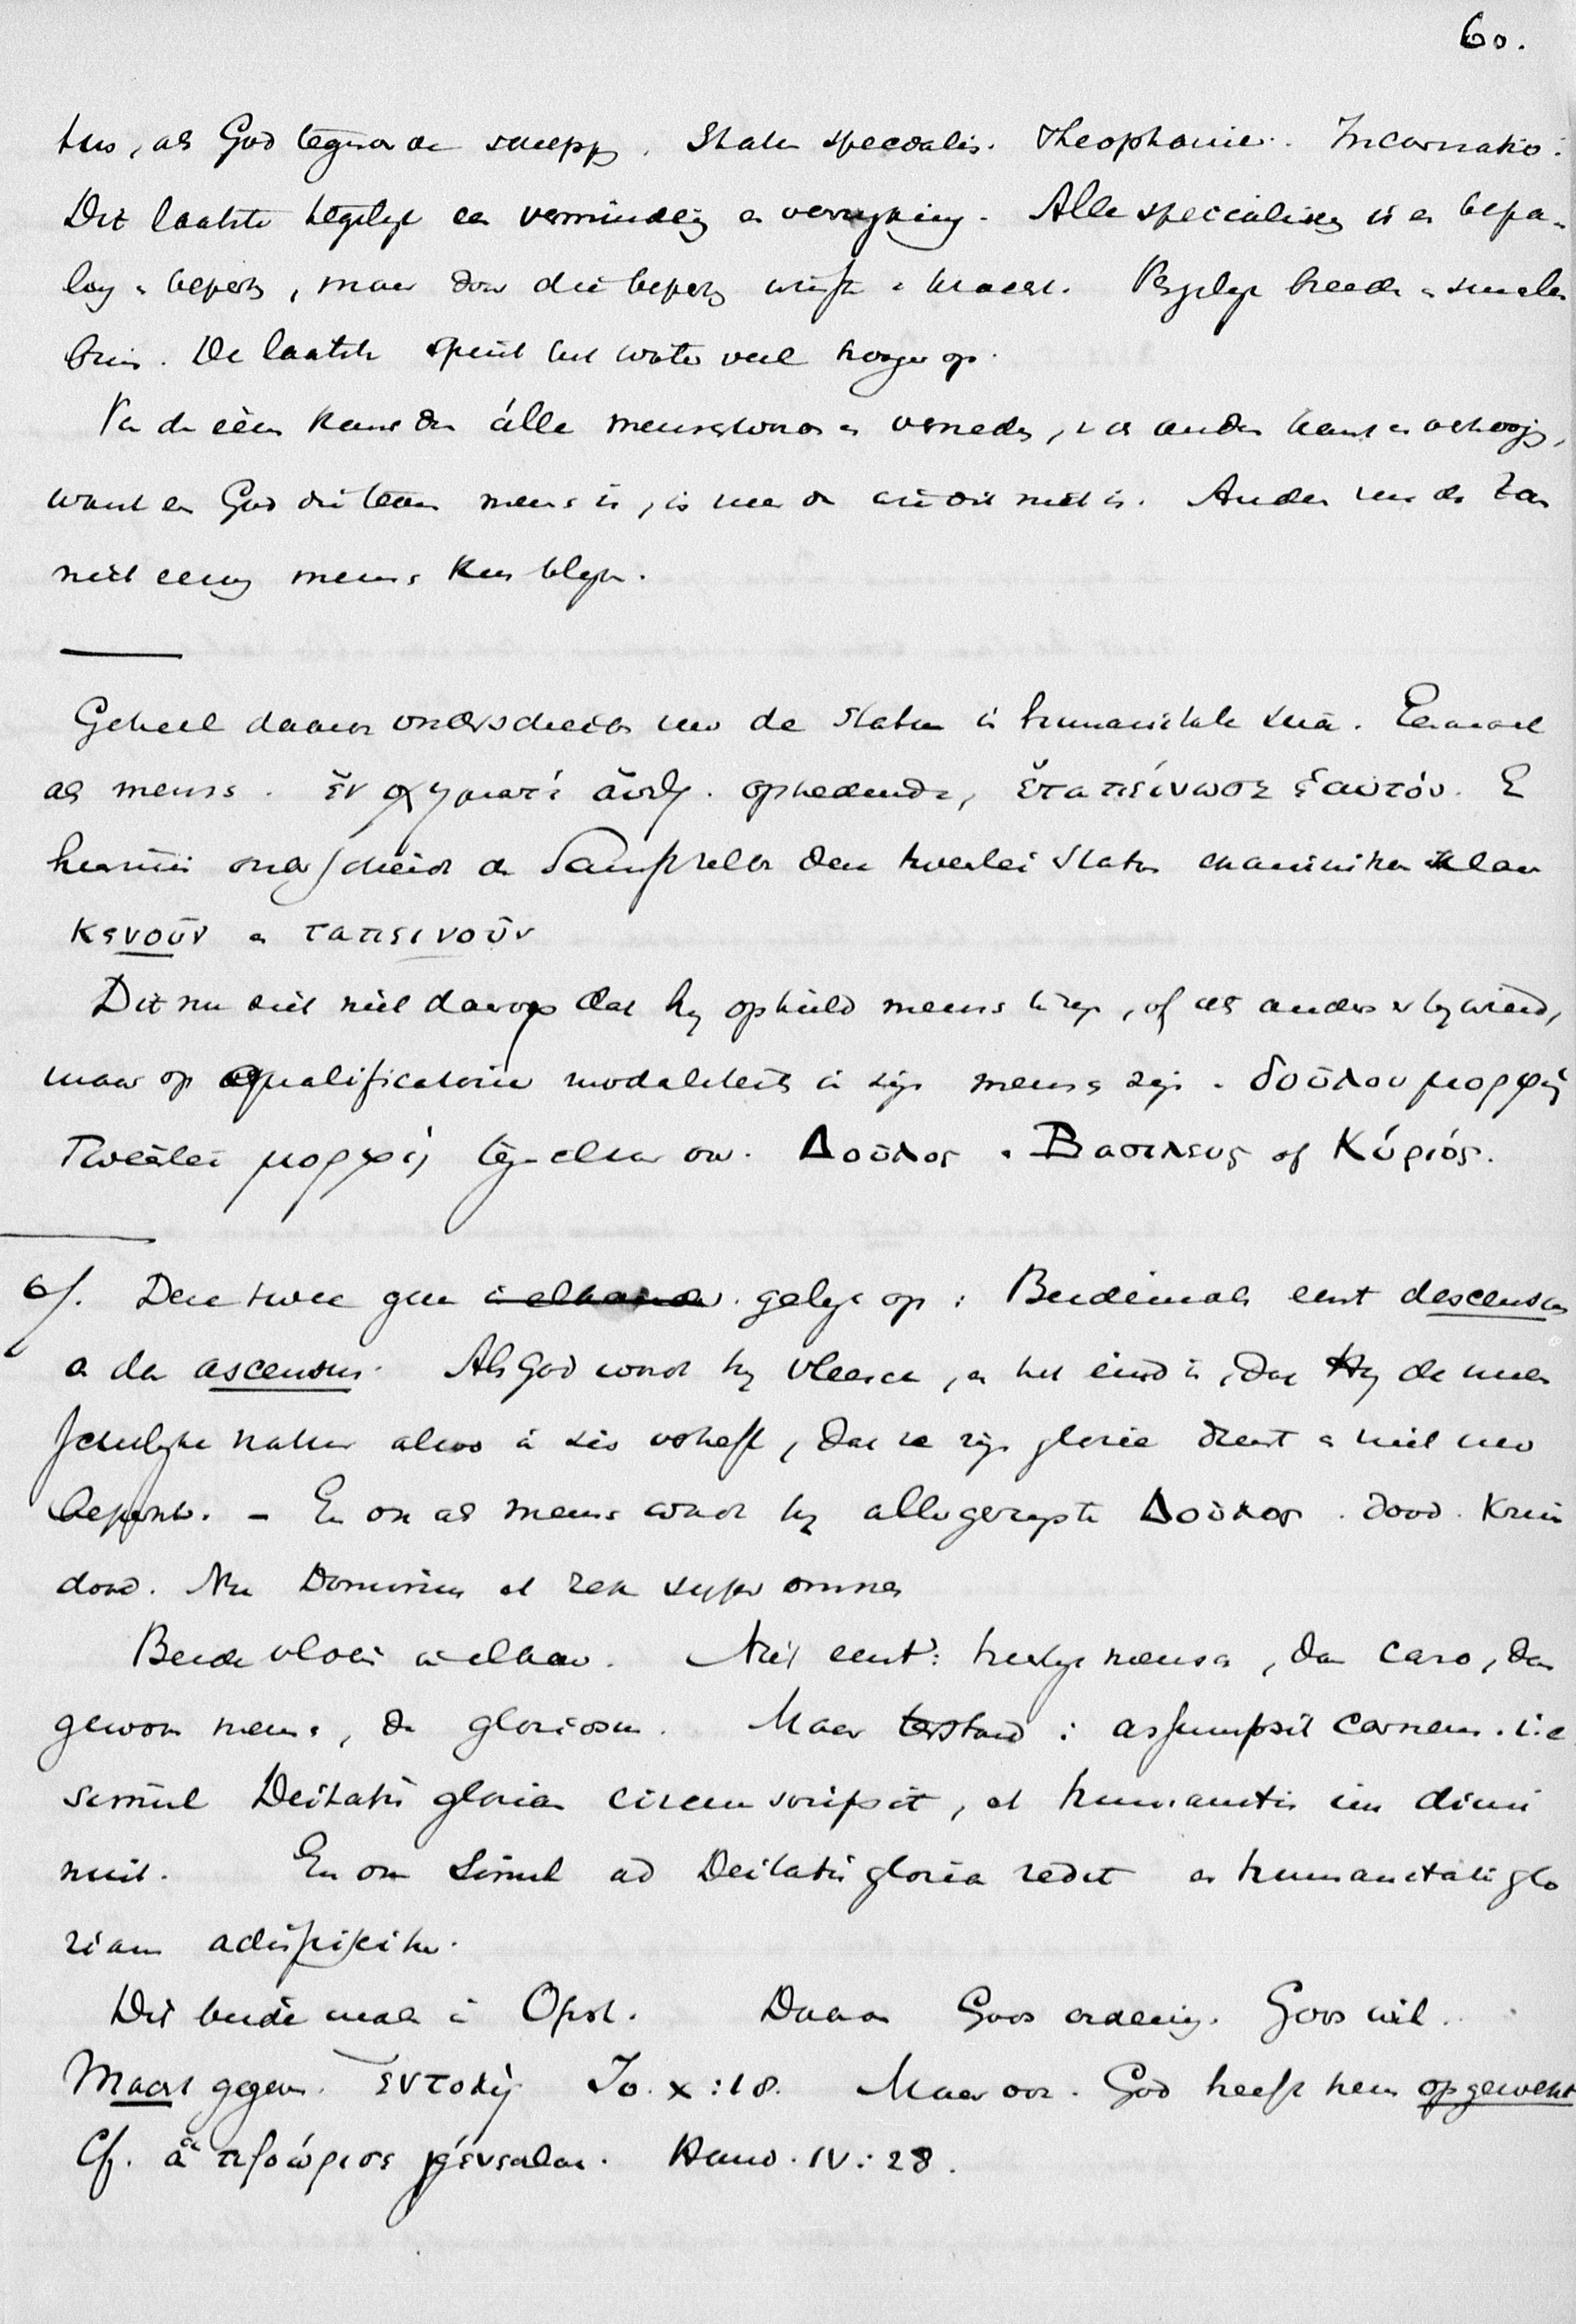 60.
tus, als God tegenov de schepp. Status specialis. Theophanie. Incarnatio.
Dit laatste tegelijk een vermindering en verrijking. Alle specialising is en bepa-
ling en beperk, maar door die beperk winst kracht. Vergelijk breede en smaller
buis. De laatste spuit het water veel hooger op.
Van de ééne kant dus álle menschword en verneder, v de ander kant en verhoogg,
want en God die tevens mens is, is meer dan die dit niet is. Anders zou de Zoon
niet eeuwig mens kun blijv.
Geheel daarvan onderscheiden nu de status in humanitate sua. Eenmaal
als mens. ἐν σχήματι ἀνθ. optredende, ἐταπείνωσε ἑαυτόν. E
hiermee onderscheid de
κενοῦν en ταπεινοῦν
Dit nu ziet niet daarop dat hij ophield mens te zijn, of iets anders erbij wierd,
maar op qualificatorie modaliteit in zijn mens zijn. δούλου μορφή
Tweeërlei μορφή tegen elkaar ov. Δοῦλος. Βασιλευς of Κύριός.
6/. Deze twee gaan gelijk op: Beidemaal eerst descensus
en dan ascensus. Als God wordt hij vleesch, en het eind is, dat Hij de men
schelijke natuur alzoo in zich verheft, dat ze zijn glorie dient en niet meer
beperkt. - En ook als mens wordt hij allergeringste Δοῦλος. dood. Kruis
dood. Nu Dominus et rex super omnes
Beide vloei in elkaar. Niet eerst: heerlijk mensch, dan caro, dan
gewoon mens, dan gloriosus. Maar terstond: assumpsit carnem. i.e.
simul Deitatis gloriam circumscripsit, et humanitatis im dimi
nuit. En ook simul ad Deitatis gloria redit en humanitatis glo
riam adipiscitur.
Dit beide maal in Opst. Daarom Gods ordening. Gods wil.
Macht gegeven. ἐντολή Jo. X:18. Maar ook. God heeft hem opgewekt
Cf. ἃ προώρισε γένεσθαι. Hand. IV:28.